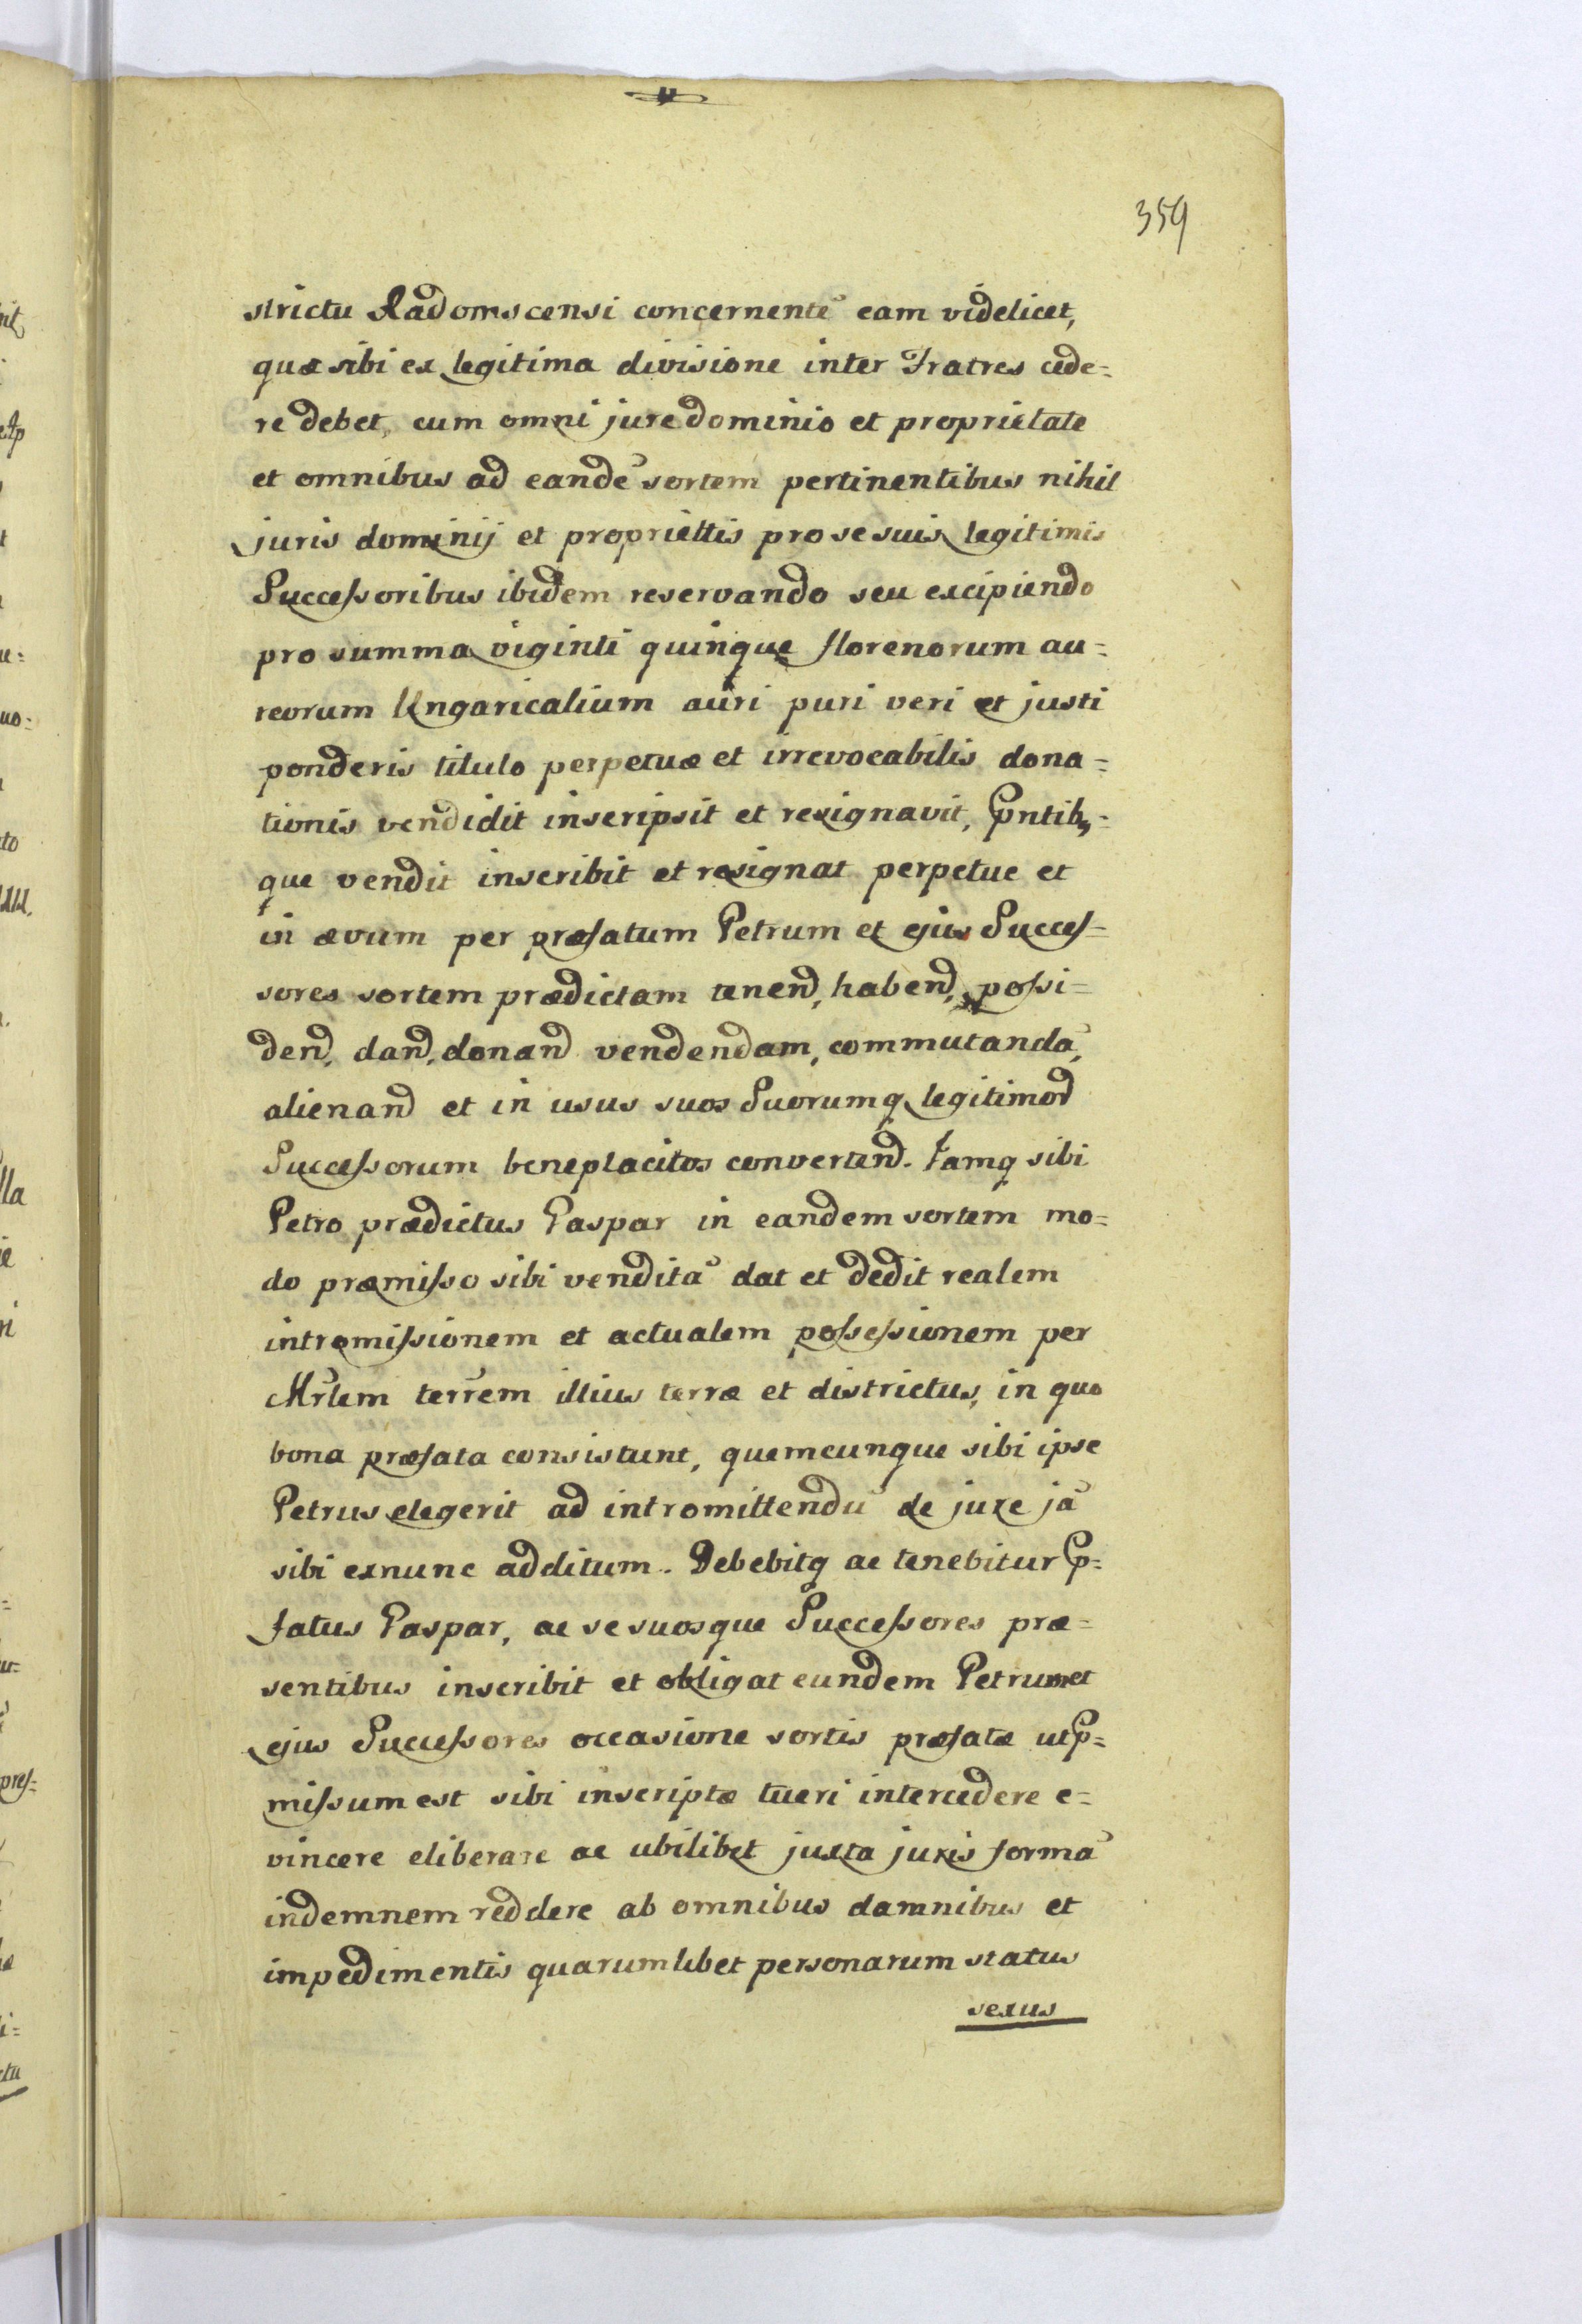 359
strictu Radomscensi concernentē eam videlicet,
quæ sibi ex legitima divisione inter Fratres cede=
re debet, cum omni jure dominio et proprietate
et omnibus ad eandē sortem pertinentibus nihil
juris dominij et propriettis pro se suis legitimis
Successoribus ibidem reservando seu excipiendo
pro summa viginti quinque florenorum au=
reorum Ungaricalium auri puri veri et justi
ponderis titulo perpetuæ et irrevocabilis dona=
tionis vendidit inscripsit et resignavit, Pntib9=
que vendit inscribit et resignat perpetue et
in ævum per præfatum Petrum et ejus Succes=
sores sortem prædictam tenend, habend, possi=
dend, dand, donand vendendam, commutandā,
alienand et in usus suos Suorumq legitimor
Successorum beneplacitos convertend. Jamq sibi
Petro prædictus Gaspar in eandem sortem mo=
do præmisso sibi venditā dat et dedit realem
intromissionem et actualem possessionem per
Mrlem terrem illius terræ et districtus, in quo
bona præfata consistunt, quemcunque sibi ipse
Petrus elegerit ad intromittendū de jure jā
sibi exnunc additum. Debebitq ac tenebitur P=
fatus Gaspar, ac se suosque Successores præ=
sentibus inscribit et obligat eundem Petrum et
ejus Successores occasione sortis præfatæ ut P=
missum est sibi inscriptæ tueri intercedere e=
vincere eliberare ac ubilibet juxta juris formā
indemnem reddere ab omnibus damnibus et
impedimentis quarumlibet personarum status
sexus